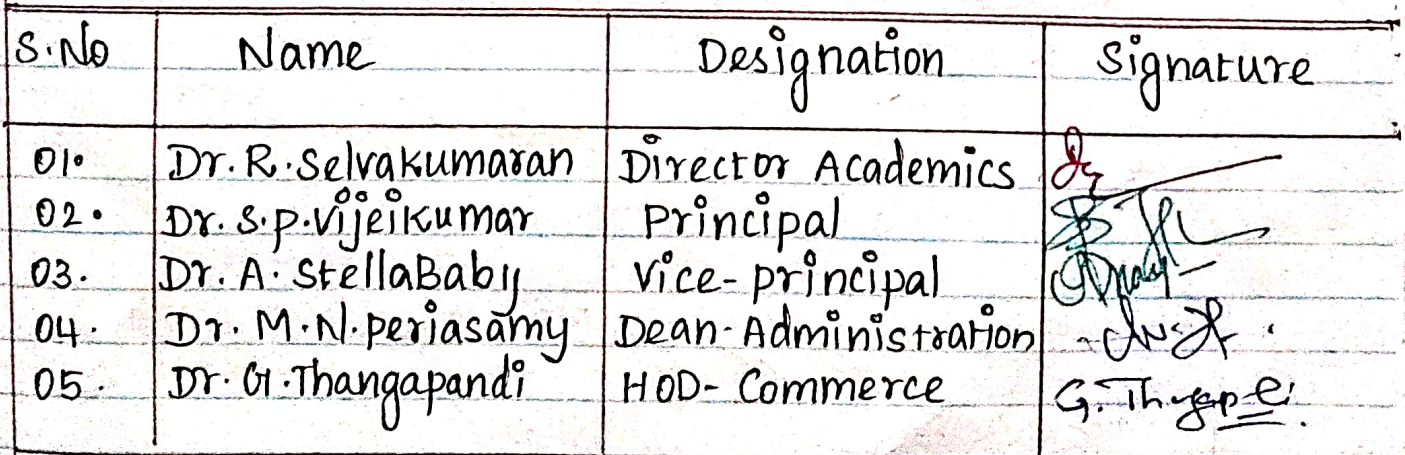 S.No Name Designation Signature
01. Dr. R. Selvakumaran Director Academics
02. Dr. S.P. Vijeikumar Principal
03. Dr. A. StellaBaby Vice-principal
04. Dr. M.N. periasamy Dean-Administration
05. Dr. G. Thangapandi HOD-Commerce